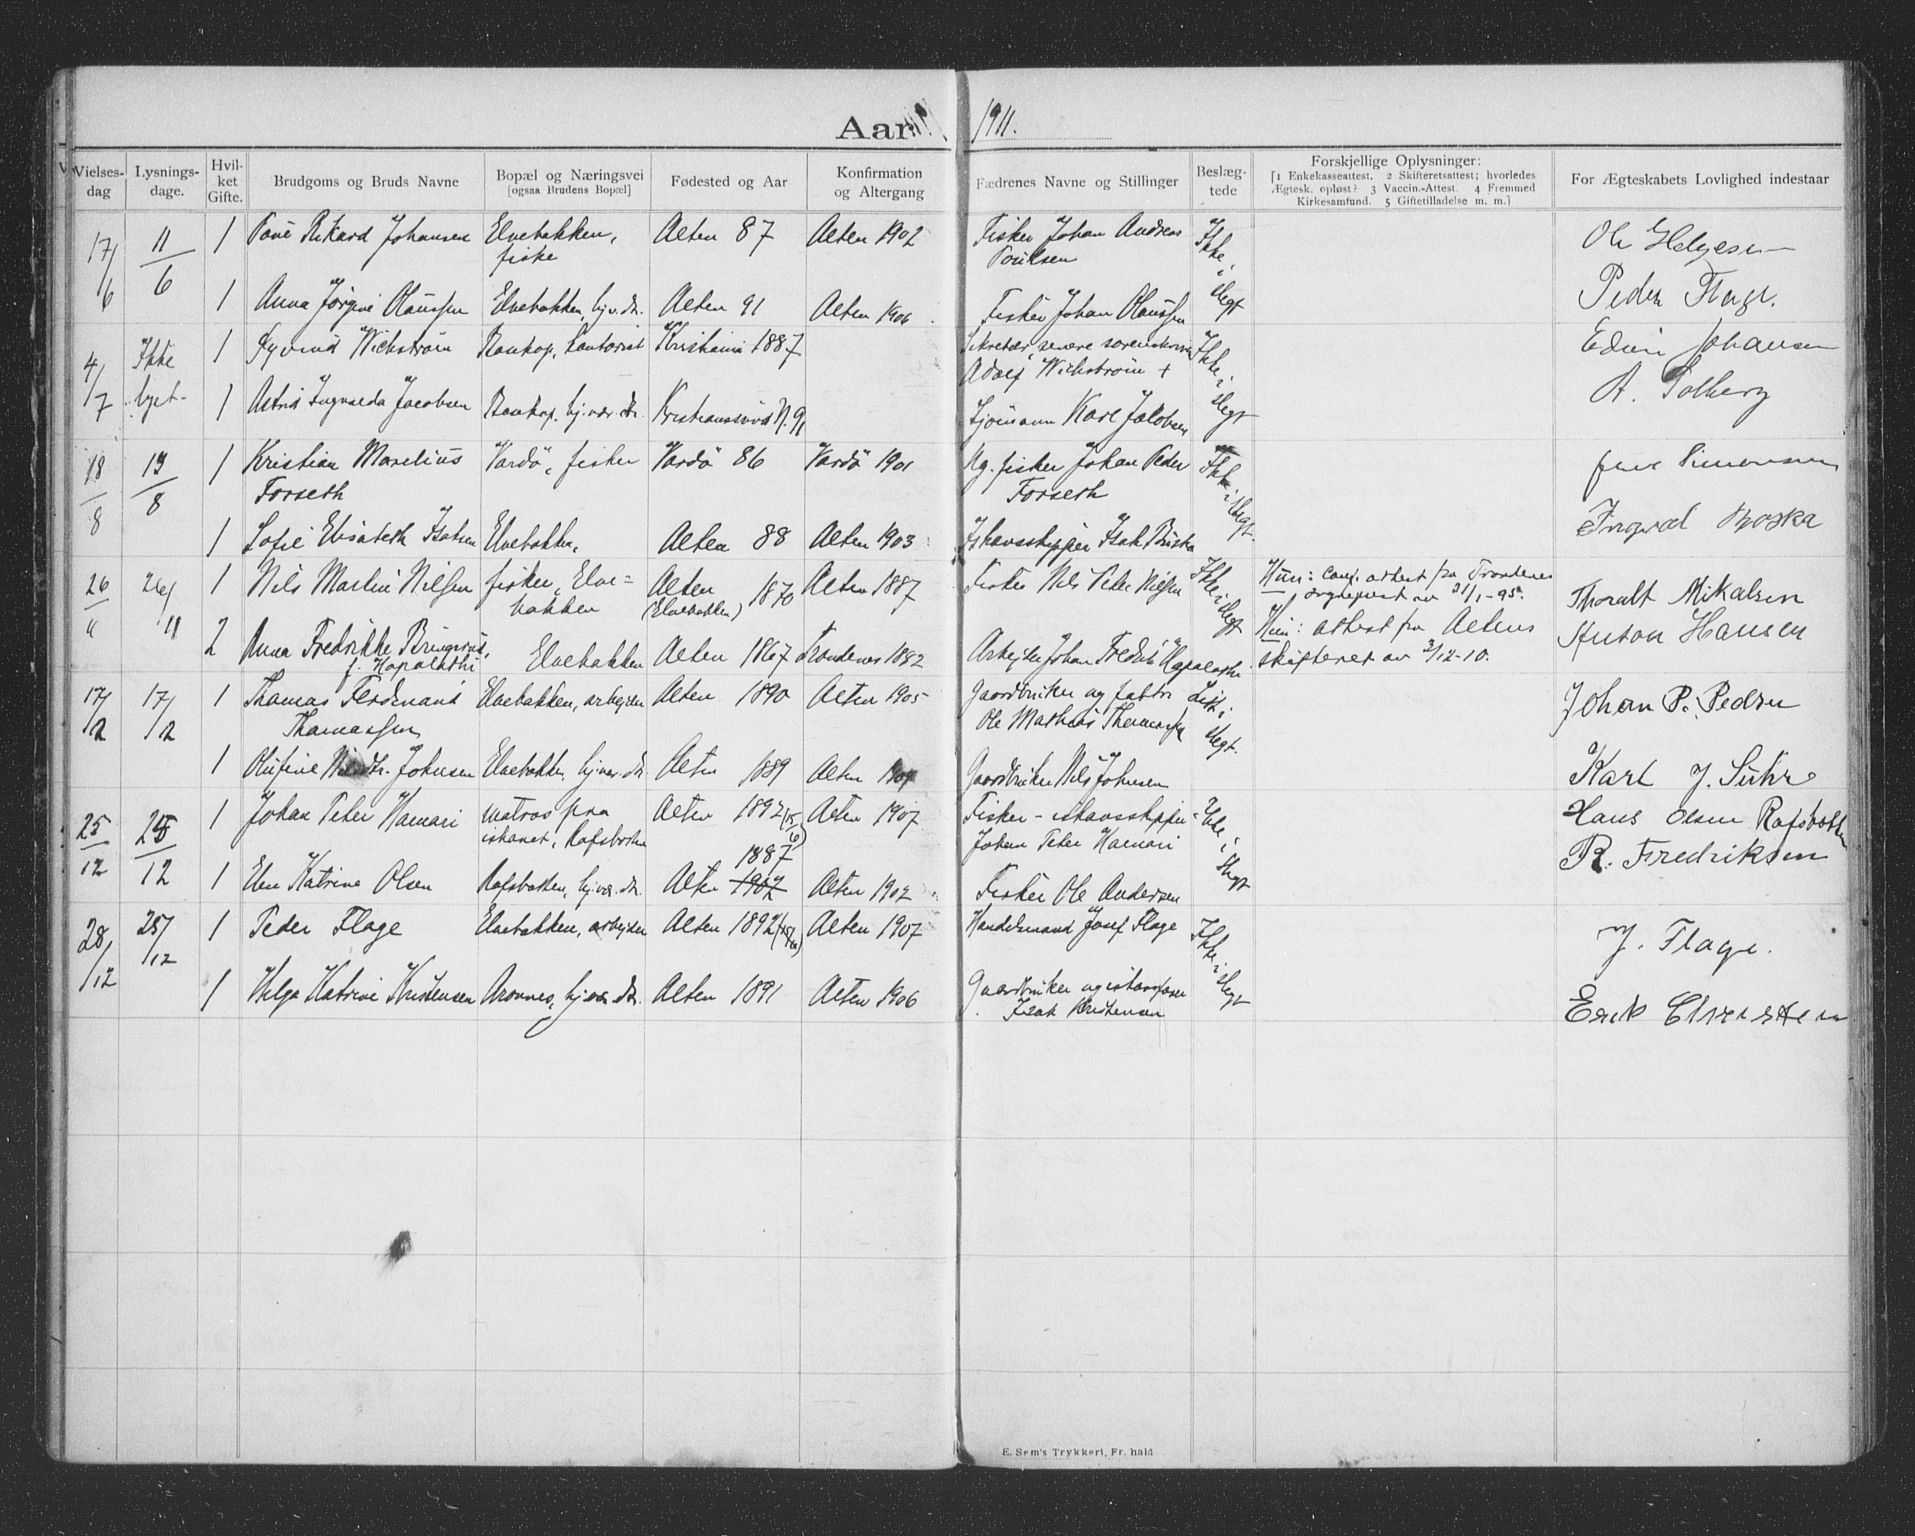 Aar 1911.
Vielses-dag
Lysnings-dage.
Hvil-ket Gifte.
Brudgoms og Bruds Navne
Bopæl og Næringsvei [ogsaa Brudens Bopæl]
Fødested og Aar
Konfirmation og Altergang
Fædrenes Navne og Stillinger
Beslæg-tede
Forskjellige Oplysninger: [1 Enkekasseattest. 2 Skifteretsattest; hvorledes Ægtesk. opløst? 3 Vaccin.-Attest. 4 Fremmed Kirkesamfund. 5 Giftetilladelse m. m.]
For Ægteskabets Lovlighed indestaar
17/6 11/6 1 Rikard Johansen Elvebakken, fiske Alten 87 Alten 1902 Fisker Johan Andreas Poulsen Ikke i slegt Ole Helgesen
1 Anna Jørgine Olaussen Elvebakken, hj.v. dr. Alten 91 Alten 1906 Fisker Johan Olaussen Peder Flage.
4/7 Ikke lyst. 1 Eyvind Wickstrøm Kontorist Kristiania 1887 Sekretær, senere sorenskriver Adolf Wickstrøm + Ikke i slegt Edvin Johansen
1 Astrid Jacobsen hj. vær. dr. Kristianssund N. 91 Sjømann Karl Jakobsen A. Solberg
18/8 13/8 1 Kristian Marelius Forseth Vardø, fisker Vardø 86 Vardø 1901 Og. fisker Johan Peder Forseth Ikke i slegt. Simonsen
1 Sofie Elisabeth Isaksen Elvebakken, Alten 88 Alten 1903 Ishavsskipper Isak Ingvald
26/11 26/11 1 Nils Martin Nilsen fisker, Elve=bakken Alten (Elvebakken) 1870 Alten 1887 Fisker Nils Peter Nilsen Ikke i slegt Hun: attest fra Trondenes sogneprest av 31/1-95. Thoralf Mikalsen
2 Anna Fredrikke f. Elvebakken Alten 1867 Trondenes 1882 Arbeider Johan Fredrik Hun: attest fra Altens skifteret av 2/12-10. Anton Hansen
17/12 17/12 1 Thomas Ferdinand Thomassen Elvebakken, arbeyder Alten 1890 Alten 1905 Gaardbruker og Ole Mathias Thomassen i slegt. Johan P. Pedersen
1 Olufine Nilsdtr. Johnsen Elvebakken, hj. vær. dr. Alten 1889 Alten Gaardbruker Nils Johnsen Karl J. Suhr
25/12 25/12 1 Johan Peter Hamari matros paa ishavet, Rafsbotn Alten 1892 (15/6) Alten 1907 Fisker - ishavsskipper Johan Peter Hamari Ikke i slegt Hans Olsen Rafsbotn
1 Katrine Olsen Rafsbotn, hj. vær. dr. Alten 1887 1902 Alten 1902 Fisker Ole Andersen R. Fredriksen
28/12 28/12 1 Peder Flage Elvebakken, arbeyder Alten 1892 Alten 1907 Handelsmand Josef Flage Ikke i slegt J. Flage.
1 Helga Katrine Kristensen Aronnes, hj. vær. dr. Alten 1891 Alten 1906 Gaardbruker og ishavsfarer Isak Kristensen Erik
E. Sem's Trykkeri, Fr. hald